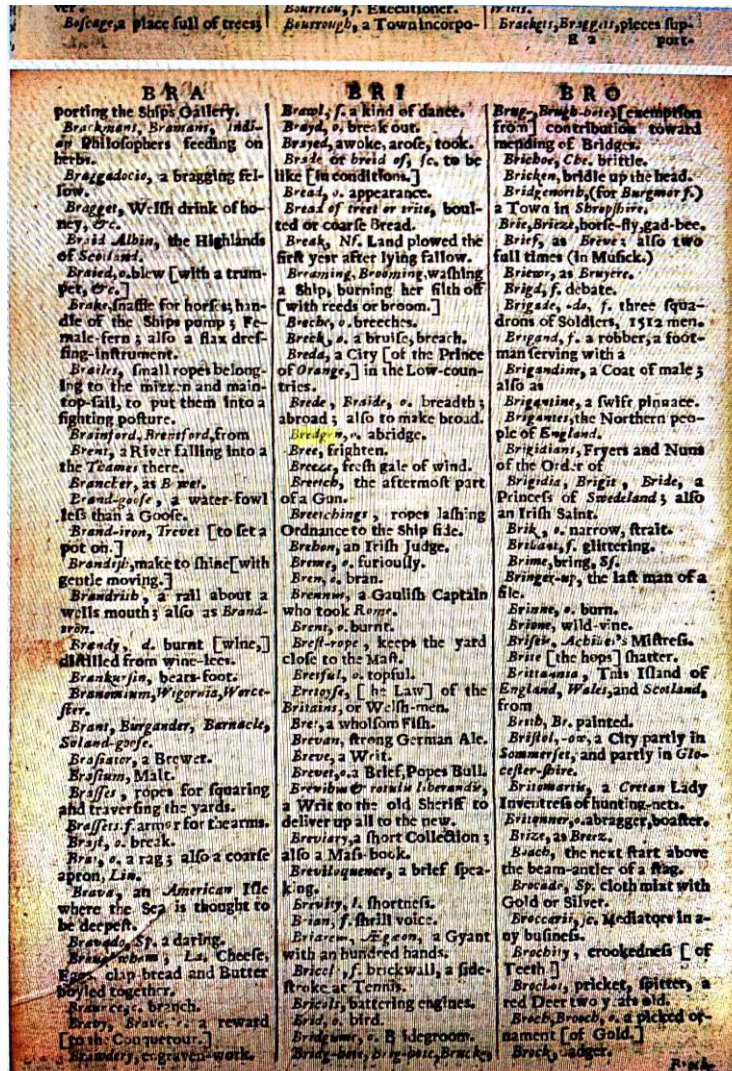 Boscage, a place full of trees;
Bourreou, f. Executioner.
Bourrough, a Town incorpo-
Brackets, Braggets, pieces sup-
R 2 port-
BRA
porting the Ships Gallery.
Brackmans, Bramans, Indi-
an Philosophers feeding on
herbs.
Braggadocio, a bragging fel-
low.
Bragget, Welſh drink of ho-
ney, &c.
Braid Albin, the Highlands
of Scotland.
Braied, o. blew [with a trum-
pet, &c.]
Brake, ſnaffle for horſes; han-
dle of the Ships pump; Fe-
male-fern; alſo a flax dreſ-
ſing-inſtrument.
Brailes, ſmall ropes belong-
ing to the mizzen and main-
top-ſail, to put them into a
fighting poſture.
Brainford, Brentford, from
Brent, a River falling into a
the Teames there.
Brancher, as B
Brand-gooſe, a water-fowl
leſs than a Gooſe.
Brand-iron, Trevet [to ſet a
pot on.]
Brandiſh, make to ſhine [with
gentle moving.]
Brandrith, a rail about a
wells mouth; alſo as Brand-
iron.
Brandy, d. burnt [wine,]
diſtilled from wine-lees.
Brankurſin, bears-foot.
Branonium, Wigornia, Worce-
ſter.
Brant, Burgander, Barnacle,
Soland-gooſe.
Braſiator, a Brewer.
Braſium, Malt.
Braſſes, ropes for ſquaring
and traverſing the yards.
Braſſets. f. armor for the arms.
Braſt, o. break.
Brat, o. a rag; alſo a coarſe
apron, Lin.
Brava, an American Iſle
where the Sea is thought to
be deepeſt.
Bravado, Sp. a daring.
La. Cheeſe,
Eggs, clap-bread and Butter
boyled together.
Braunce, c. branch.
Bravy, Brave, a reward
[to the Conquerour.]
engraven-work.
BRI
Brawl, f. a kind of dance.
Brayd, o. break out.
Brayed, awoke, aroſe, took.
Brade or breid of, ſc. to be
like [in conditions.]
Bread, o. appearance.
Bread of treet or trite, boul-
ted or coarſe Bread.
Break, Nf. Land plowed the
firſt year after lying fallow.
Breaming, Brooming, waſhing
a Ship, burning her filth off
[with reeds or broom.]
Breche, o. breeches.
Breck, o. a bruiſe, breach.
Breda, a City [of the Prince
of Orange,] in the Low-coun-
tries.
Brede, Braide, o. breadth;
abroad; alſo to make broad.
Bredgen, o. abridge.
Bree, frighten.
Breeze, freſh gale of wind.
Breetch, the aftermoſt part
of a Gun.
Breetchings, ropes laſhing
Ordnance to the Ship ſide.
Brehon, an Iriſh Judge.
Breme, o. furiouſly.
Bren, o. bran.
Brennus, a Gauliſh Captain
who took Rome.
Brent, o. burnt.
Breſt-rope, keeps the yard
cloſe to the Maſt.
Bretful, o. topful.
Bretoyſe, [he Law] of the
Britains, or Welſh-men.
Bret, a wholſom Fiſh.
Brevan, ſtrong German Ale.
Breve, a Writ.
Brevet, o. a Brief, Popes Bull.
Brevibus & rotulis liberandis,
a Writ to the old Sheriff to
deliver up all to the new.
Breviary, a ſhort Collection;
alſo a Maſs-book.
Breviloquence, a brief ſpea-
king.
Brevity, l. ſhortneſs.
Brian, f. ſhrill voice.
Briareus, Ægæon, a Gyant
with an hundred hands.
Bricel, f. brickwall, a ſide-
ſtroke at Tennis.
Bricols, battering engines.
Brid, o. bird.
Bridgume, o. B idegroom.
Bridg-bote, Brig-bote, Bruck,
BRO
Brug-, Brugh-bote, [exemption
from] contribution toward
mending of Bridges.
Brichoe, Che. brittle.
Bricken, bridle up the head.
Bridgenorth, (for Burgmorf.)
a Town in Shropſhire.
Brie, Brieze, horſe-fly, gad-bee.
Brief, as Breve; alſo two
full times (in Muſick.)
Briewr, as Bruyere.
Brigd, f. debate.
Brigade, -do, f. three ſqua-
drons of Soldiers, 1512 men.
Brigand, f. a robber, a foot-
man ſerving with a
Brigandine, a Coat of male;
alſo as
Brigantine, a ſwift pinnace.
Brigantes, the Northern peo-
ple of England.
Brigidians, Fryers and Nuns
of the Order of
Brigidia, Brigit, Bride, a
Princeſs of Swedeland; alſo
an Iriſh Saint.
Brik, o. narrow, ſtrait.
Brilant, f. glittering.
Brime, bring, Sſ.
Bringer-up, the laſt man of a
file.
Brinne, o. burn.
Brione, wild-vine.
Briſeis, Achilles's Miſtreſs.
Brite [the hops] ſhatter.
Brittannia, This Iſland of
England, Wales, and Scotland,
from
Brith, Br. painted.
Briſtol, -ow, a City partly in
Sommerſet, and partly in Glo-
ceſter-ſhire.
Britomartis, a Cretan Lady
Inventreſs of hunting-nets.
Britonner, o. a bragger, boaſter.
Brize, as Breez.
Broach, the next ſtart above
the beam-antler of a ſtag.
Brocado, Sp. cloth mixt with
Gold or Silver.
Broccarii, ſc. Mediators in a-
ny buſineſs.
Brochity, crookedneſs [of
Teeth.]
Brocket, pricket, ſpitter, a
red Deer two y ars old.
Broch, Brooch, o. a picked or-
nament [of Gold.]
Brock, badger.